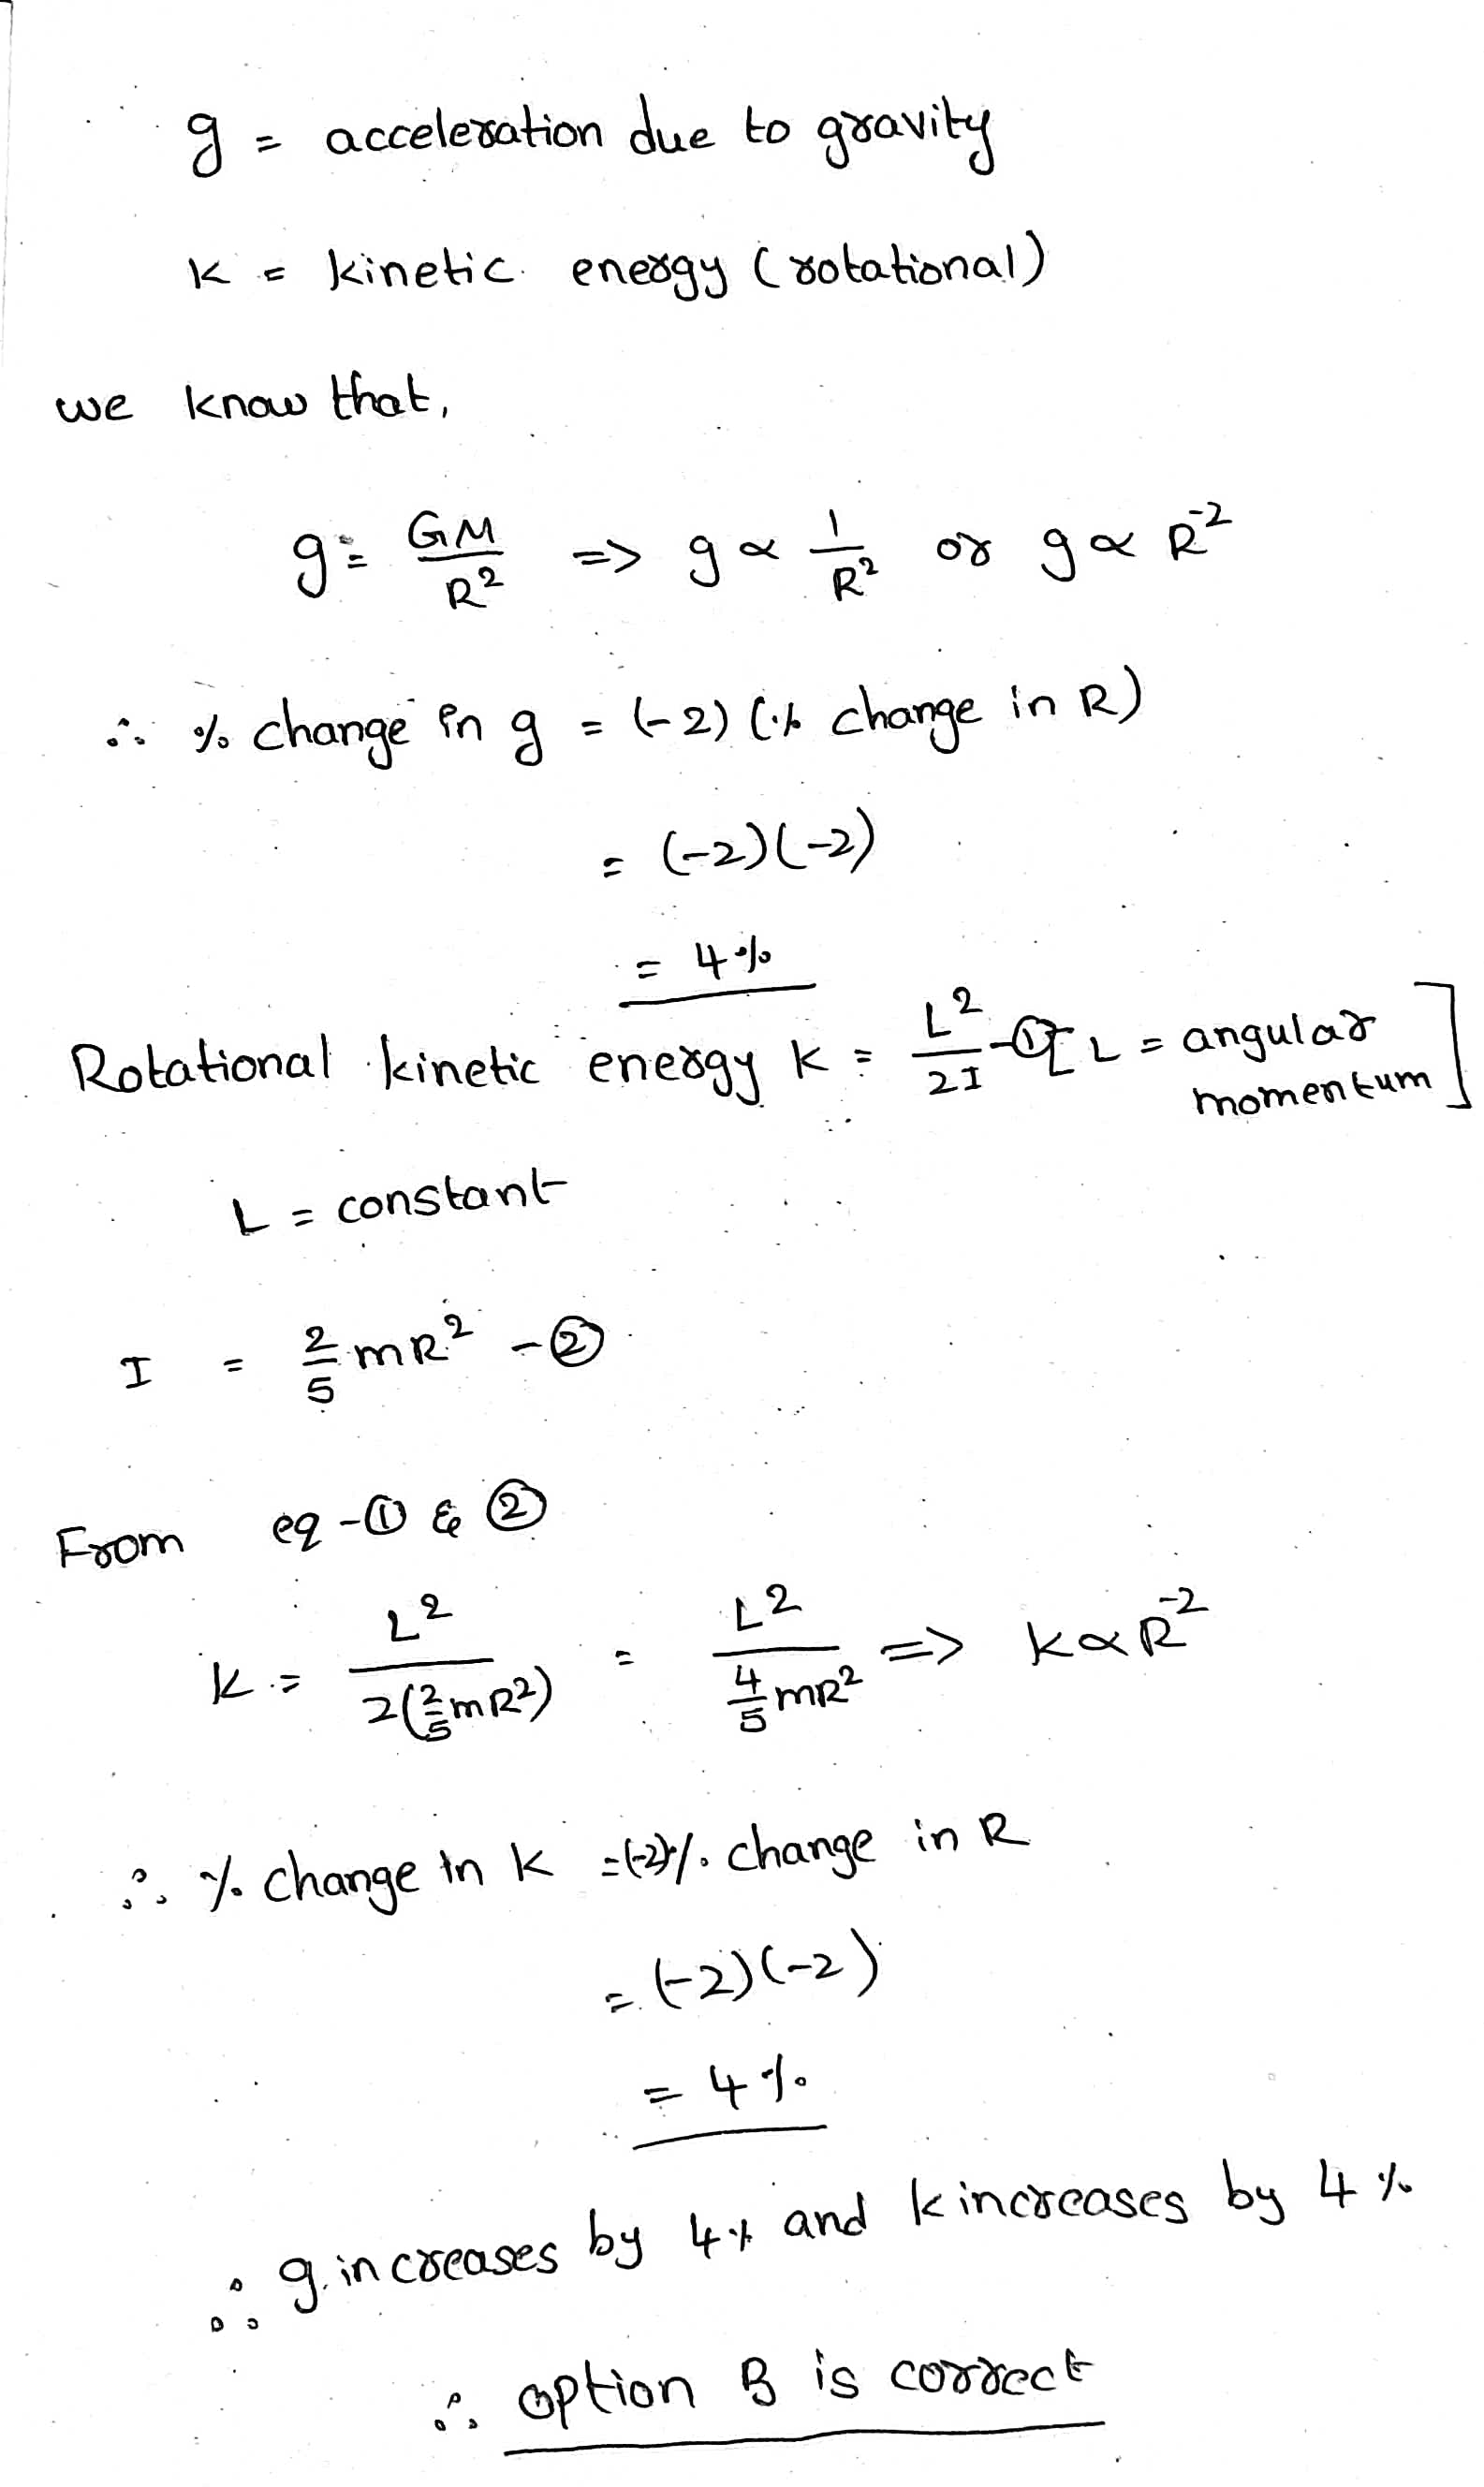 g = acceleration due to gravity
K = kinetic energy (rotational)
we know that,
g = GM/R² => g ∝ 1/R² or g ∝ R⁻²
∴ % change in g = (-2) (% change in R)
= (-2)(-2)
= 4%
Rotational kinetic energy K = L²/2I -① [L = angular momentum]
L = constant
I = 2/5 mR² -②
From eq-① & ②
K = L²/2(2/5 mR²) = L²/(4/5 mR²) => K ∝ R⁻²
∴ % change in K = (-2)% change in R
= (-2)(-2)
= 4%
∴ g increases by 4% and K increases by 4%
∴ option B is correct